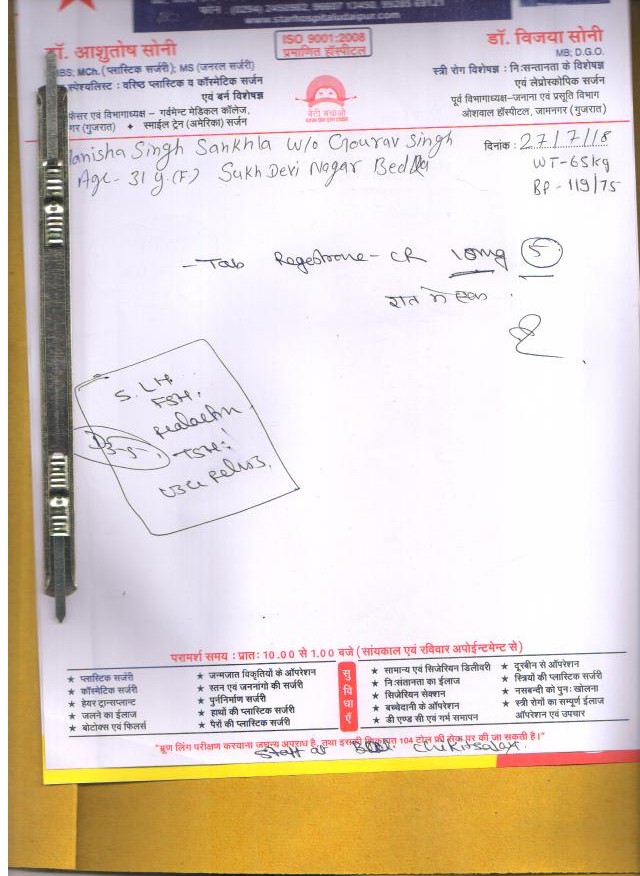 फोन : (0294)
ISO 9001:2008
प्रमाणित हॉस्पीटल
डॉ. आशुतोष सोनी
MBBS; MCh. (प्लास्टिक सर्जरी); MS (जनरल सर्जरी)
स्पेश्यलिस्ट : वरिष्ठ प्लास्टिक व कॉस्मेटिक सर्जन
एवं बर्न विशेषज्ञ
फेसर एवं विभागाध्यक्ष – गर्वमेन्ट मेडिकल कॉलेज,
गर (गुजरात) ✦ स्माईल ट्रेन (अमेरिका) सर्जन
बेटी बचाओ
डॉ. विजया सोनी
MB; D.G.O.
स्त्री रोग विशेषज्ञ : निःसन्तानता के विशेषज्ञ
एवं लेप्रोस्कोपिक सर्जन
पूर्व विभागाध्यक्ष-जनाना एवं प्रसूति विभाग
ओशवाल हॉस्पीटल, जामनगर (गुजरात)
दिनांक : 27/7/18
anisha Singh Sankhla w/o Gourav Singh
Age - 31 y. (F) Sukh Devi Nagar Bedla
WT - 65kg
BP - 119/75
- Tab Regestrone - CR 10mg 5
रात में एक
S. LH.
FSH.
Prolactin
TSH.
USG Pelvis.
परामर्श समय : प्रातः 10.00 से 1.00 बजे (सांयकाल एवं रविवार अपोईन्टमेन्ट से)
★ प्लास्टिक सर्जरी
★ कॉस्मेटिक सर्जरी
★ हेयर ट्रान्सप्लान्ट
★ जलने का ईलाज
★ बोटोक्स एवं फिलर्स
★ जन्मजात विकृतियों के ऑपरेशन
★ स्तन एवं जननांगो की सर्जरी
★ पुर्ननिर्माण सर्जरी
★ हाथों की प्लास्टिक सर्जरी
★ पैरों की प्लास्टिक सर्जरी
सुविधाएँ
★ सामान्य एवं सिजेरियन डिलीवरी
★ निःसंतानता का ईलाज
★ सिजेरियन सेक्शन
★ बच्चेदानी के ऑपरेशन
★ डी एण्ड सी एवं गर्भ समापन
★ दूरबीन से ऑपरेशन
★ स्त्रियों की प्लास्टिक सर्जरी
★ नसबन्दी को पुनः खोलना
★ स्त्री रोगों का सम्पूर्ण ईलाज
ऑपरेशन एवं उपचार
"भ्रूण लिंग परीक्षण करवाना जघन्य अपराध है, तथा इसकी शिकायत 104 टोल फ्री सेवा पर की जा सकती है।"
Staff at Chikitsalaya.